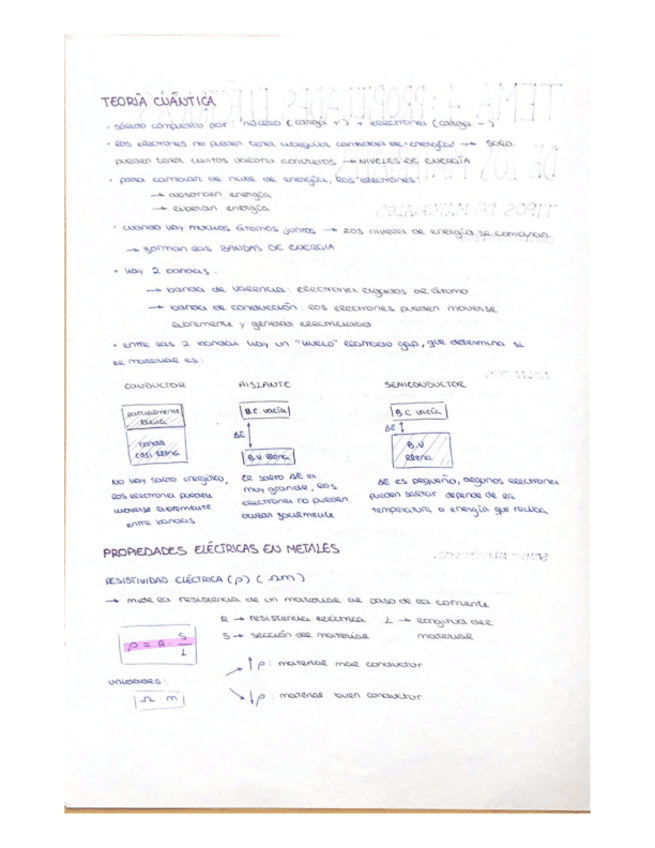 TEORÍA CUÁNTICA
· sólido compuesto por: núcleo (carga +) + electrones (carga -)
· los electrones no pueden tener cualquier cantidad de energía! → solo
pueden tener ciertos valores concretos → NIVELES DE ENERGÍA
· para cambiar de nivel de energía, los electrones:
→ absorben energía
→ liberan energía
· cuando hay muchos átomos juntos → los niveles de energía se combinan
→ forman las BANDAS DE ENERGIA
· hay 2 bandas:
→ banda de valencia: electrones ligados al átomo
→ banda de conducción: los electrones pueden moverse
libremente y generar electricidad
· entre las 2 bandas hay un "hueco" llamado gap, que determina si
el material es:
CONDUCTOR AISLANTE SEMICONDUCTOR
parcialmente
llena
banda
casi llena
B.C. vacía
ΔE
B.V. llena
B.C. vacía
ΔE
B.V
llena
No hay salto energético,
los electrones pueden
moverse libremente
entre bandas
El salto ΔE es
muy grande, los
electrones no pueden
cruzar fácilmente
ΔE es pequeño, algunos electrones
pueden saltar depende de la
temperatura o energía que reciba
PROPIEDADES ELÉCTRICAS EN METALES
RESISTIVIDAD ELÉCTRICA (ρ) (Ωm)
→ mide la resistencia de un material al paso de la corriente
R → resistencia eléctrica L → longitud del
S → sección del material material
ρ = R · S/L
↑ρ: material mal conductor
unidades:
Ω · m
↓ρ: material buen conductor